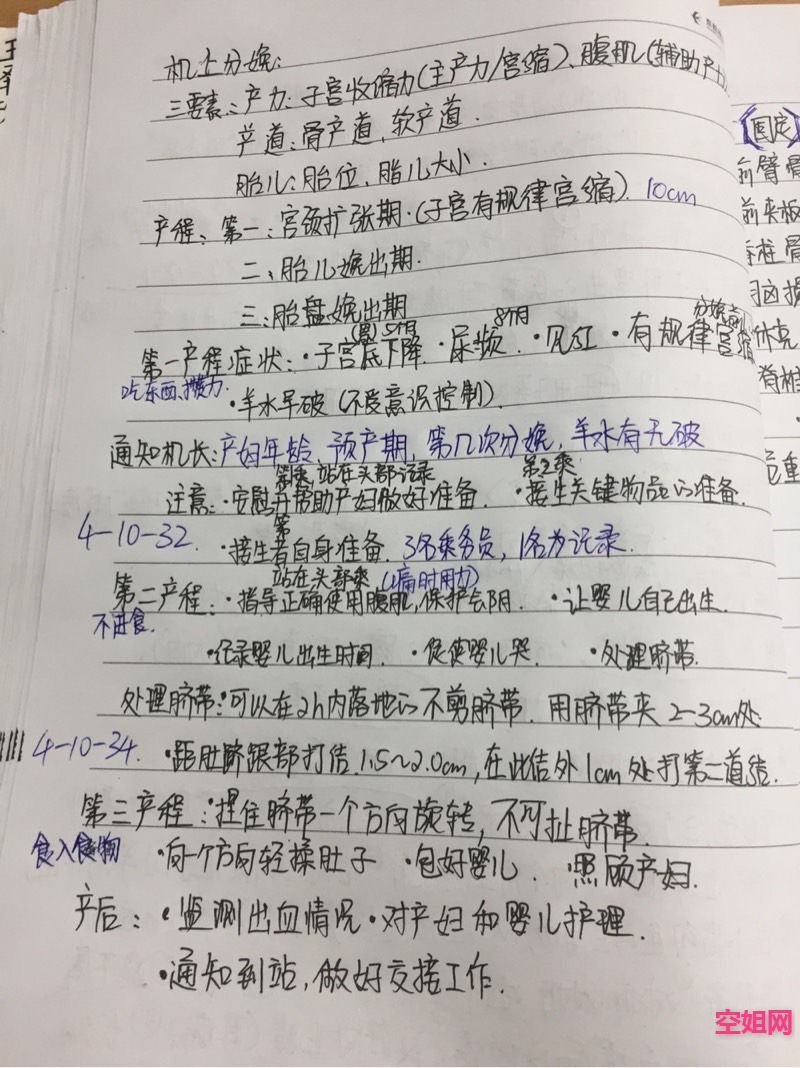 机上分娩:
三要素:产力:子宫收缩力(主产力/宫缩)、腹肌(辅助产力
产道:骨产道,软产道.
胎儿:胎位、胎儿大小.
产程:第一:宫颈扩张期.(子宫有规律宫缩) 10cm
二、胎儿娩出期.
三:胎盘娩出期
5个月 8个月 分娩前
第一产程症状:·子宫底下降.·尿频.·见红·有规律宫缩
吃东西、攒力.
·羊水早破(不受意识控制).
通知机长:产妇年龄、预产期,第几次分娩,羊水有无破
站在头部记录 第2乘
注意:·安慰并帮助产妇做好准备.·接生关键物品的准备.
4-10-32. 第
·接生者自身准备.3名乘务员,1名为记录.
站在头部乘(痛时用力)
第二产程:·指导正确使用腹肌,保护会阴.·让婴儿自己出生.
不进食.
·记录婴儿出生时间.·促使婴儿哭.·处理脐带.
处理脐带:可以在2h内落地的不剪脐带.用脐带夹2-3cm处
4-10-34.·距肚脐跟部打结.1.5~2.0cm,在此结外1cm处打第二道结.
第三产程:·捏住脐带一个方向旋转,不可扯脐带.
食入食物
·向一个方向轻揉肚子·包好婴儿.·照顾产妇.
产后:·监测出血情况·对产妇和婴儿护理.
·通知到站,做好交接工作.
【固定】
前臂骨
前夹板
脊柱骨
休克
脊柱
空姐网